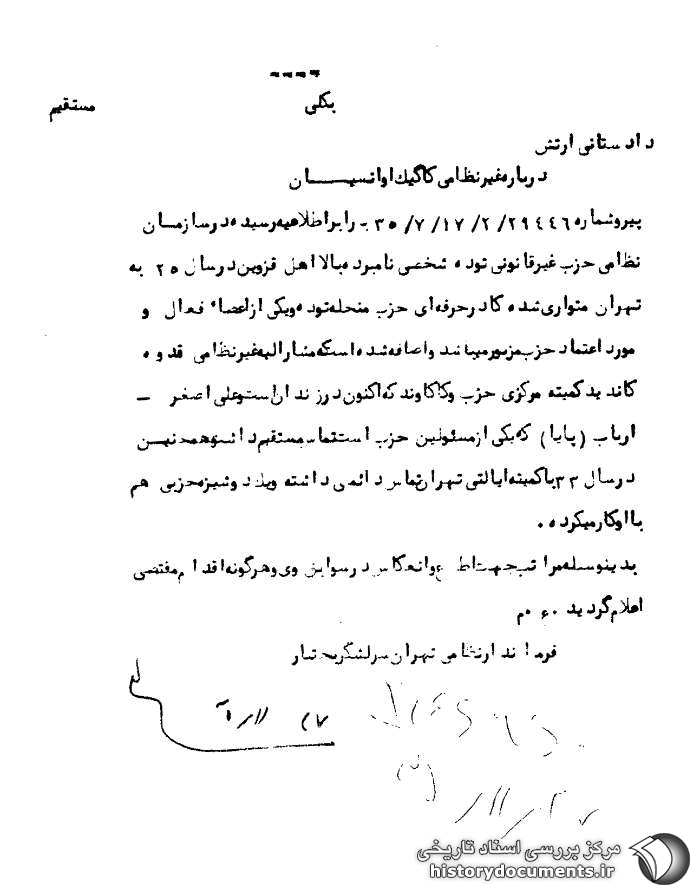 بکلی
مستقیم
دادستانی ارتش
درباره غیرنظامی کاگیك اوانسیان
پیرو شماره ۲۹۴۴۶/۲/۱۷/۷/۳۵ - برابر اطلاعیه رسیده در سازمان
نظامی حزب غیرقانونی توده شخصی نامبرده بالا اهل قزوین در سال ۲۵ به
تهران متواری شده کادر حرفه‌ای حزب منحله توده و یکی از اعضاء فعال و
مورد اعتماد حزب مزبور میباشد و اضافه شده است که مشارالیه غیرنظامی قدوه
کاندید کمیته مرکزی حزب و کاکاوند که اکنون در زندان است و علی اصغر -
ارباب (پایا) که یکی از مسئولین حزب است تماس مستقیم داشته و همچنین
در سال ۳۳ با کمیته ایالتی تهران تماس دائمی داشته و یک دوشیزه حزبی هم
با او کار میکرده.
بدینوسیله مراتب جهت اطلاع و انعکاس در سوابق وی و هرگونه اقدام مقتضی
اعلام گردید. ع. م
فرماندار نظامی تهران سرلشگر بختیار
مرکز بررسی اسناد تاریخی
historydocuments.ir